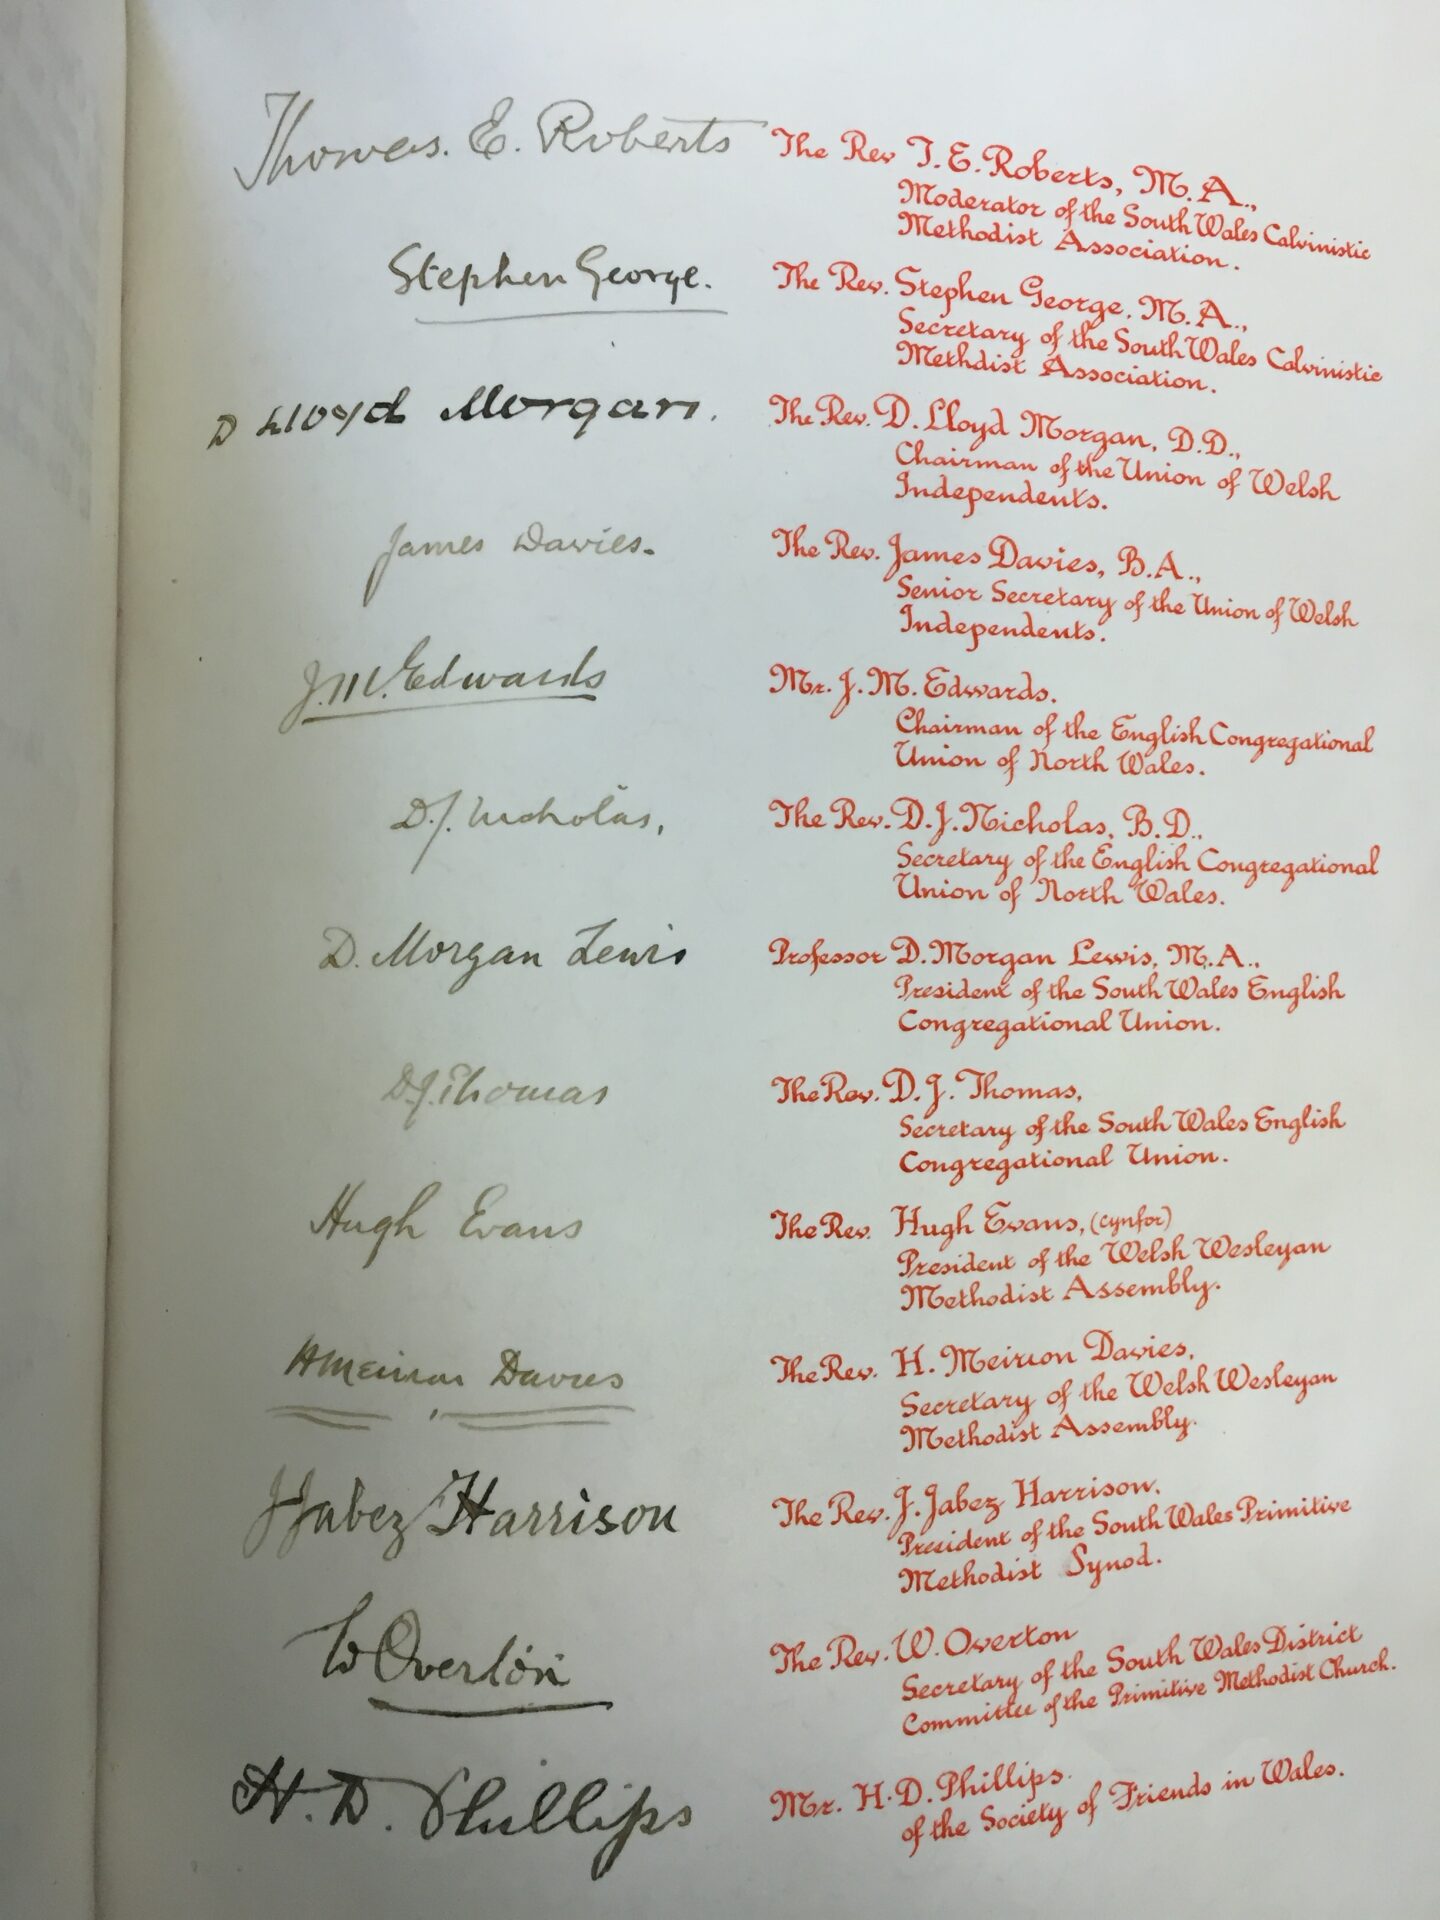 Thomas. E. Roberts
The Rev T. E. Roberts, M.A.,
Moderator of the South Wales Calvinistic
Methodist Association.
Stephen George.
The Rev. Stephen George, M.A.,
Secretary of the South Wales Calvinistic
Methdist Association.
D Lloyd Morgan.
The Rev. D. Lloyd Morgan, D.D.,
Chairman of the Union of Welsh
Independents.
James Davies.
The Rev. James Davies, B.A.,
Senior Secretary of the Union of Welsh
Independents.
J.M. Edwards
Mr. J. M. Edwards.
Chairman of the English Congregational
Union of North Wales.
D. J. Nicholas,
The Rev. D. J. Nicholas, B.D.,
Secretary of the English Congregational
Union of North Wales.
D. Morgan Lewis
Professor D. Morgan Lewis, M.A.,
President of the South Wales English
Congregational Union.
D.J. Thomas
The Rev. D. J. Thomas,
Secretary of the South Wales English
Congregational Union.
Hugh Evans
The Rev. Hugh Evans, (cynfor)
President of the Welsh Wesleyan
Methodist Assembly.
H Meirion Davies
The Rev. H. Meirion Davies,
Secretary of the Welsh Wesleyan
Methodist Assembly.
J Jabez Harrison
The Rev. J. Jabez Harrison,
President of the South Wales Primitive
Methodist Synod.
W Overton
The Rev. W. Overton
Secretary of the South Wales District
Committee of the Primitive Methodist Church.
H. D. Phillips
Mr. H. D. Phillips.
of the Society of Friends in Wales.